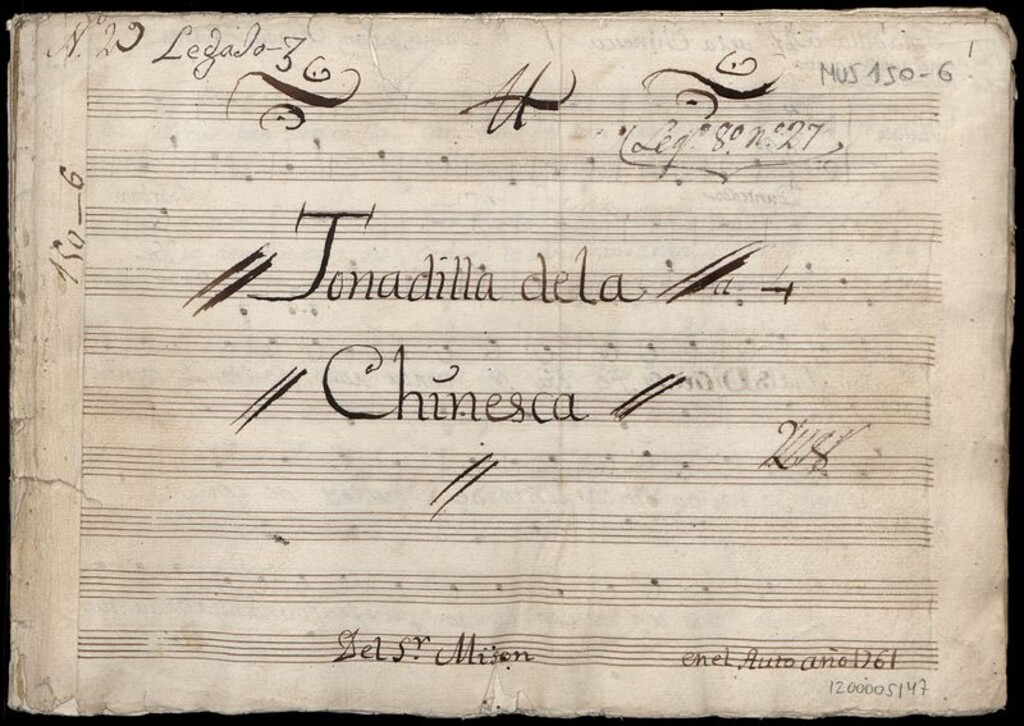 N. 29 Legado-3
1
MUS 150-6
Leg.º 8.º n.º 27
150-6
Tonadilla dela a. 4
Chinesca
Del S.r Mison
en el Auto año 1761
1200005147